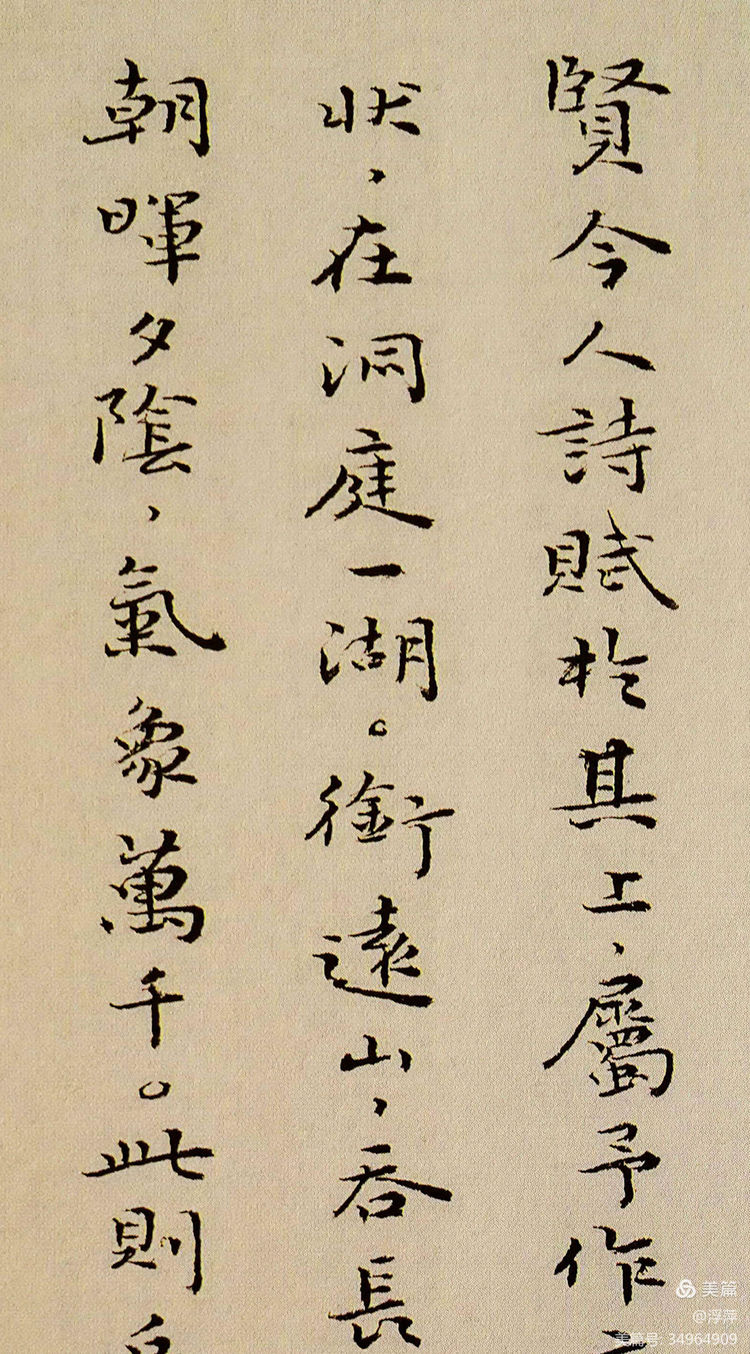 賢今人詩賦於其上、屬予作
状、在洞庭一湖。銜遠山、吞長
朝暉夕陰、氣象萬千。此則
美篇
@浮萍
美篇号: 34964909